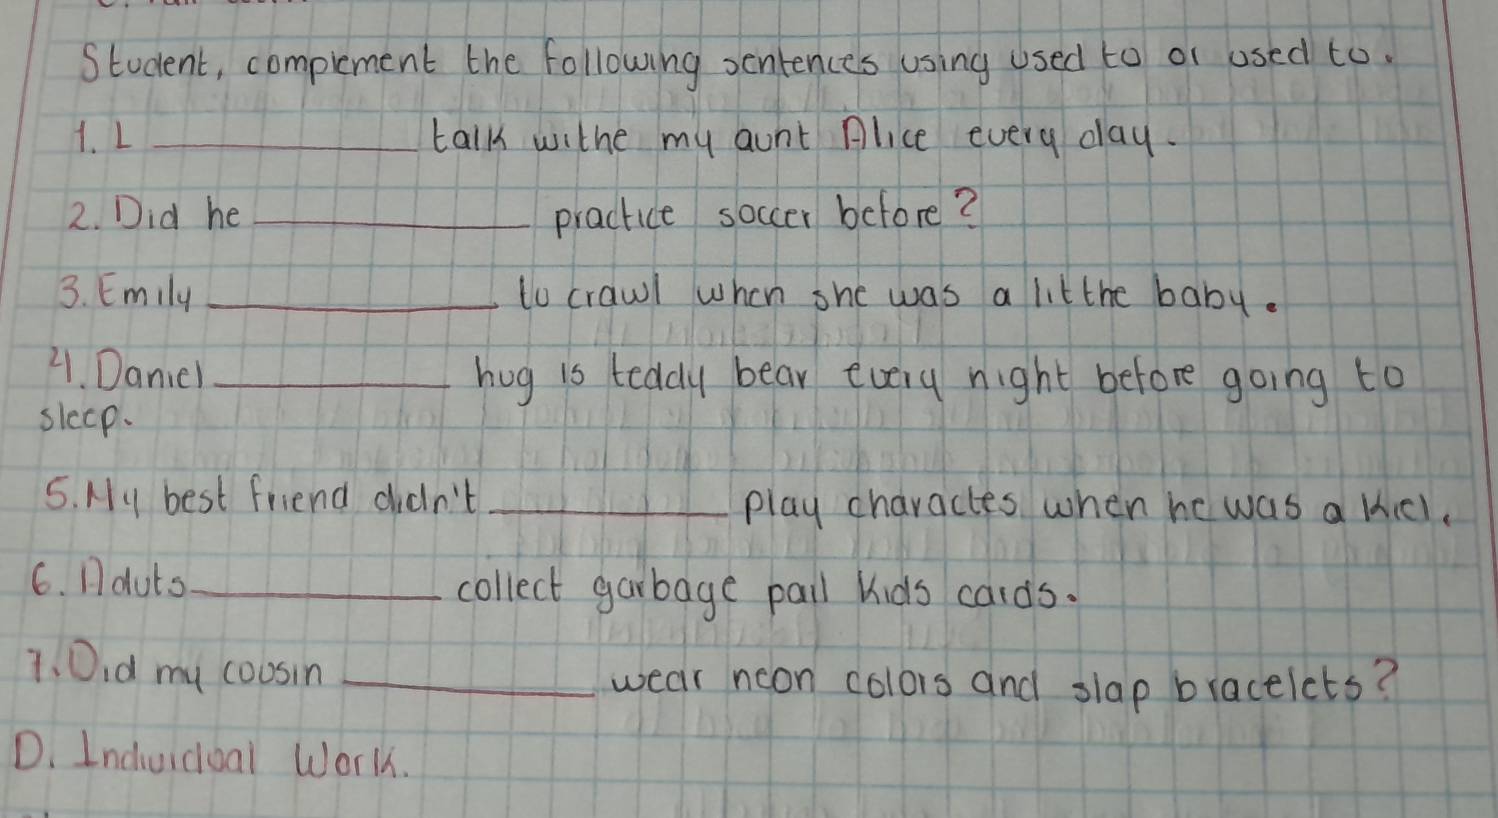 Student, complement the following sentences using used to or used to.
1. I ________ talk withe my aunt Alice every day.
2. Did he ________ practice soccer before?
3. Emily ________ to crawl when she was a litthe baby.
4. Daniel ________ hug is teddy bear every night before going to
sleep.
5. My best friend didn't ________ play charactes when he was a kid.
6. Aduts ________ collect garbage pail kids cards.
7. Did my cousin ________ wear neon colors and slap bracelets?
D. Individual Work.